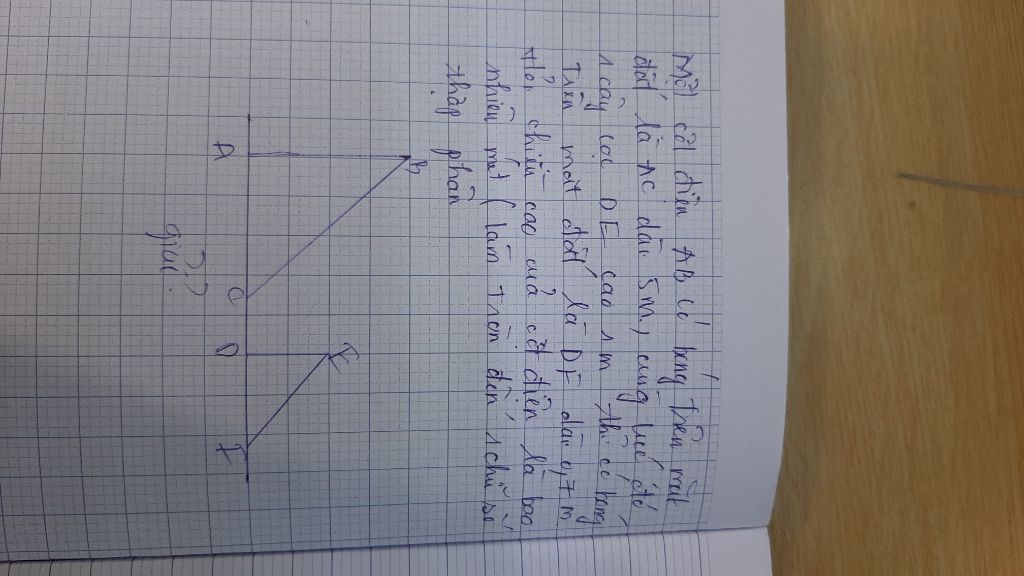 Một cột điện AB có bóng trên mặt
đất là AC dài 5m, cùng lúc đó
1 cây cọc DE cao 1m thì có bóng
trên mặt đất là DF dài 0,7m
Hỏi chiều cao của cột điện là bao
nhiêu mét ( làm tròn đến 1 chữ số
thập phân
B
E
A
C
D
F
giải?